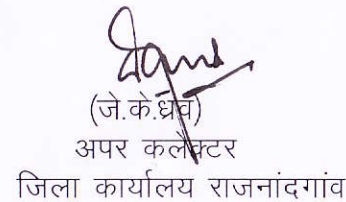 (जे.के.ध्रुव)
अपर कलेक्टर
जिला कार्यालय राजनांदगांव